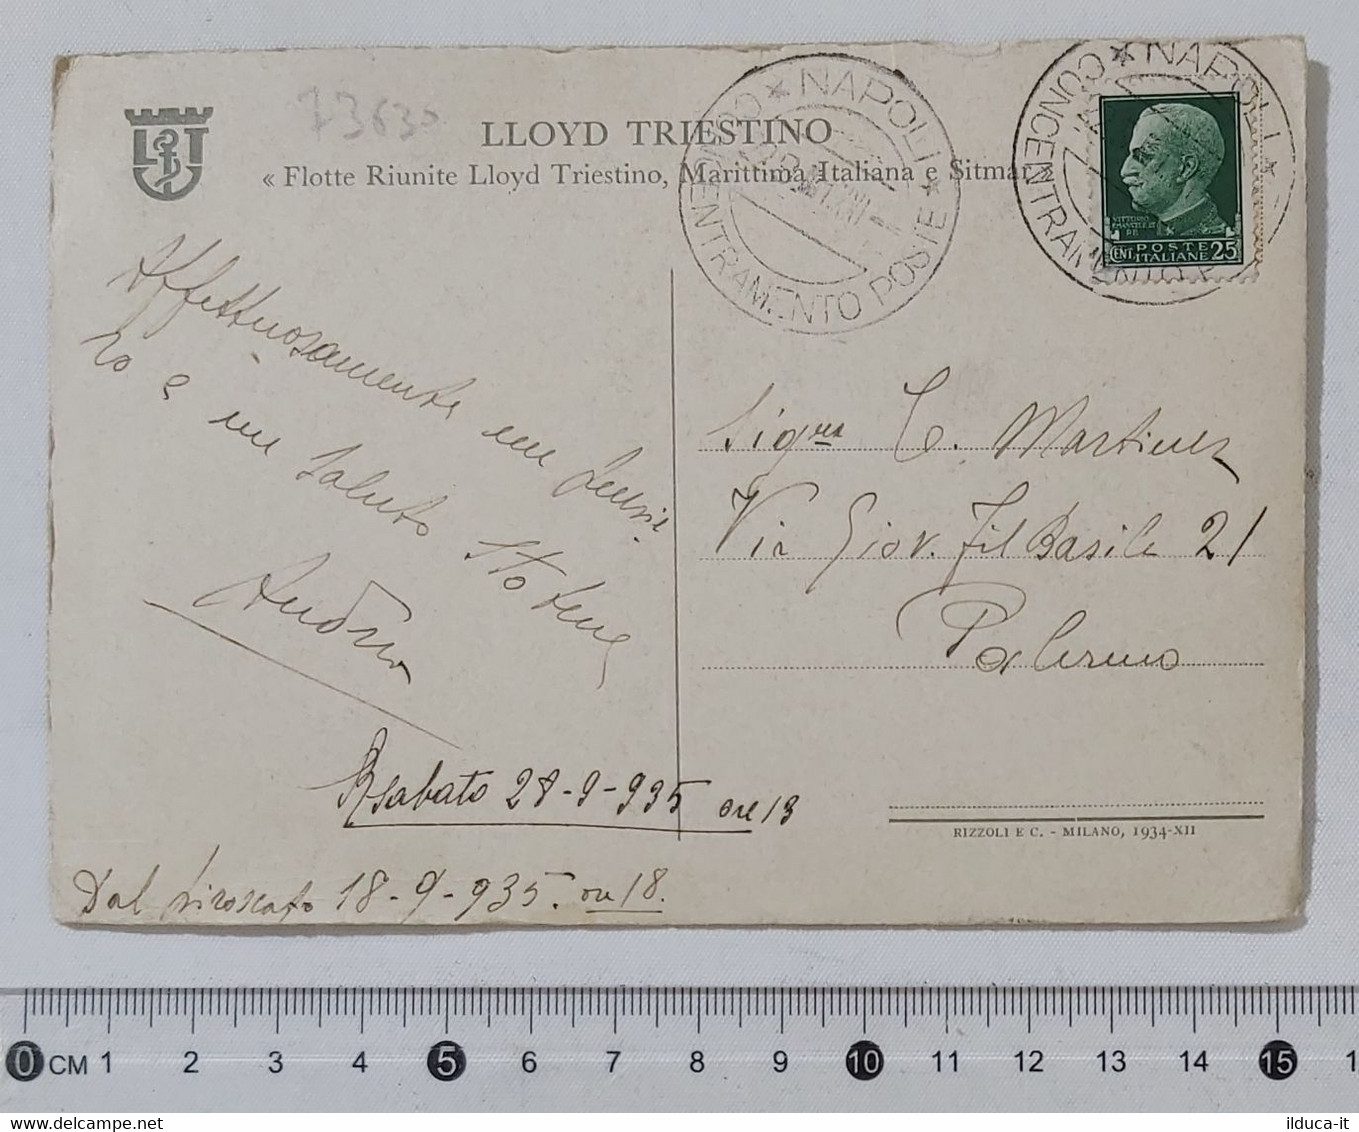 73630
LLOYD TRIESTINO
« Flotte Riunite Lloyd Triestino, Marittima Italiana e Sitmar »
LT
NAPOLI
CONCENTRAMENTO POSTE
NAPOLI
CONCENTRAMENTO P
VITTORIO
EMANUELE III
RE
POSTE
CENT ITALIANE 25
Affettuosamente un
e un saluto
Sigra C. Martinez
Via Giov. Fil Basile 21
Palermo
Sabato 28-9-935 ore 13
Dal piroscafo 18-9-935. ore 18.
RIZZOLI E C. - MILANO, 1934-XII
0 CM 1 2 3 4 5 6 7 8 9 10 11 12 13 14 15 1
ilduca-it